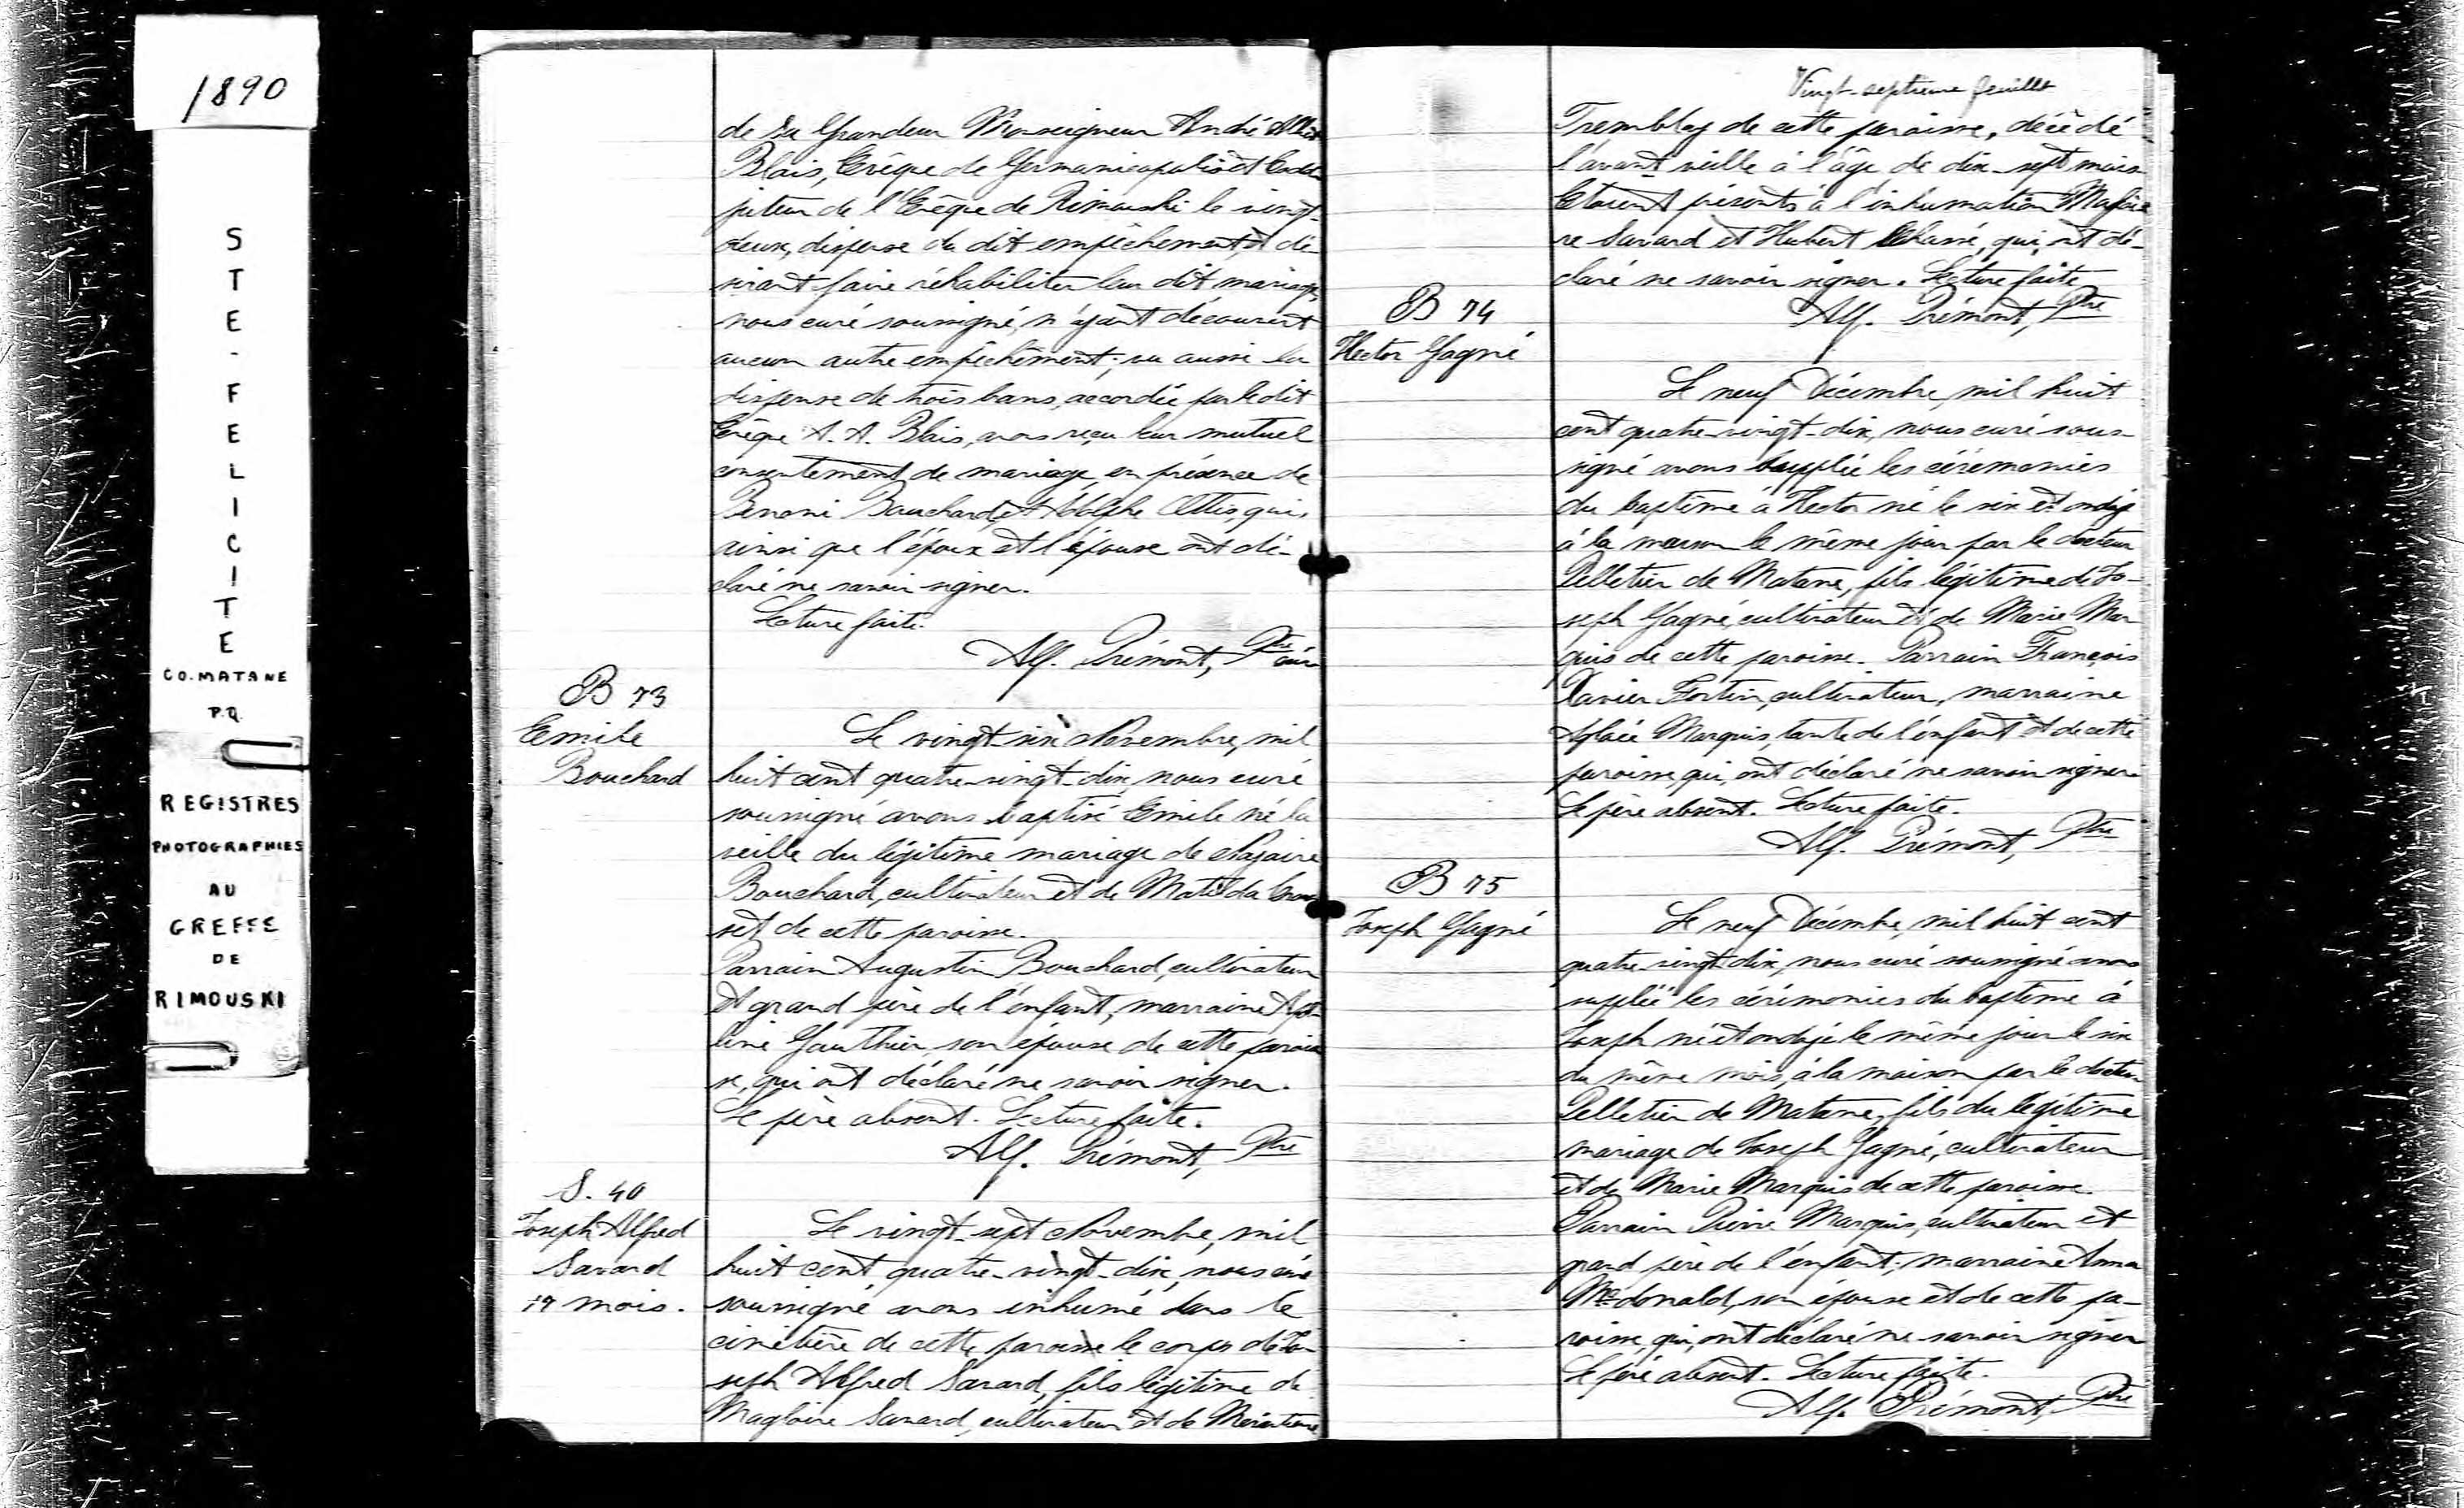 1890
STE-FELICITE
CO. MATANE
P.Q.
REGISTRES
PHOTOGRAPHIES
AU
GREFFE
DE
RIMOUSKI
de Sa Grandeur Monseigneur André Albert
Blais, Evêque de Germanicopolis et Coad-
juteur de l'Evêque de Rimouski le vingt-
deux, dispense du dit empêchement, et dé-
sirant faire réhabiliter leur dit mariage,
nous curé soussigné, n'ayant découvert
aucun autre empêchement; vu aussi la
dispense de trois bans, accordée par le dit
Evêque A. A. Blais, avons reçu leur mutuel
consentement de mariage en présence de
Benoni Bouchard, et Adolphe Ottis, qui,
ainsi que l'époux et l'épouse ont dé-
claré ne savoir signer.
Lecture faite.
Alf. Prémont, Ptre curé
B 73
Emile
Bouchard
Le vingt-six Novembre, mil
huit cent quatre-vingt-dix, nous curé
soussigné avons baptisé Emile né la
veille du légitime mariage de Nazaire
Bouchard, cultivateur et de Matilda
set de cette paroisse.
Parrain Augustin Bouchard, cultivateur
et grand père de l'enfant, marraine
line Gauthier, son épouse de cette parois
se, qui ont déclaré ne savoir signer.
Le père absent. Lecture faite.
Alf. Prémont, Ptre
S. 40
Joseph Alfred
Savard
17 mois.
Le vingt-sept Novembre, mil
huit cent, quatre-vingt-dix, nous curé
soussigné avons inhumé dans le
cimetière de cette paroisse le corps de Jo-
seph Alfred Savard, fils légitime de
Magloire Savard, cultivateur et de
Vingt-septième feuillet
Tremblay de cette paroisse, décédé
l'avant veille à l'âge de dix-sept mois.
Etaient présents à l'inhumation Magloi
re Savard et Hubert qui, ont dé-
claré ne savoir signer. Lecture faite
Alf. Prémont, Ptre
B 74
Hector Gagné
Le neuf Décembre, mil huit
cent quatre-vingt-dix, nous curé sous-
signé avons suppléé les cérémonies
du baptême à Hector né le six et ondoyé
à la maison le même jour par le docteur
Pelletier de Matane, fils légitime de Jo-
seph Gagné, cultivateur et de Marie Mar
quis de cette paroisse. Parrain François
Xavier Fortin, cultivateur, marraine
Aglaée Marquis, tante de l'enfant et de cette
paroisse, qui, ont déclaré ne savoir signer.
Le père absent. Lecture faite.
Alf. Prémont, Ptre
B 75
Joseph Gagné
Le neuf Décembre, mil huit cent
quatre-vingt-dix, nous curé soussigné avons
suppléé les cérémonies du baptême à
Joseph né et ondoyé le même jour le six
du même mois, à la maison par le docteur
Pelletier de Matane, fils du légitime
mariage de Joseph Gagné, cultivateur
et de Marie Marquis de cette paroisse.
Parrain Pierre Marquis, cultivateur et
grand père de l'enfant; marraine Anna
McDonald, son épouse et de cette pa-
roisse, qui, ont déclaré ne savoir signer
Le père absent. Lecture faite.
Alf. Prémont, Ptre